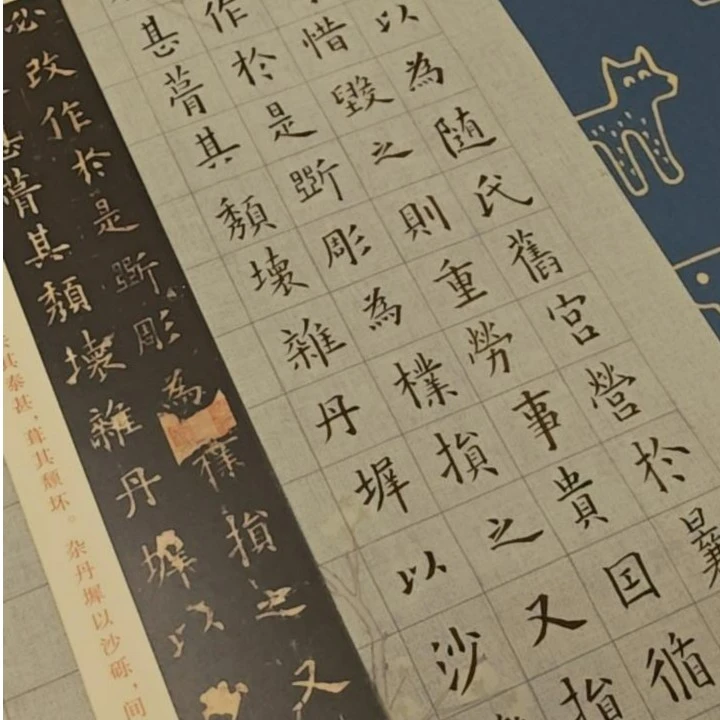 以為隨氏舊宮營於曩
惜毀之則重勞事貴因循
作於是斲彫為樸損之又損
甚葺其頹壞雜丹墀以沙
必改作於是斲彫為樸損之又
葺其頹壞雜丹墀以
其泰甚，葺其颓坏。杂丹墀以沙砾，间